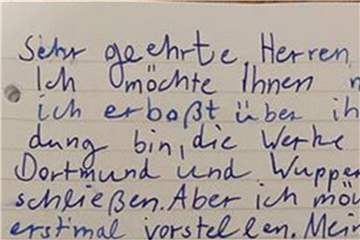 Sehr geehrte Herren,
Ich möchte Ihnen
ich erboßt über ih
dung bin, die Werke
Dortmund und Wupper
schließen. Aber ich mö
erstmal vorstellen. Mein